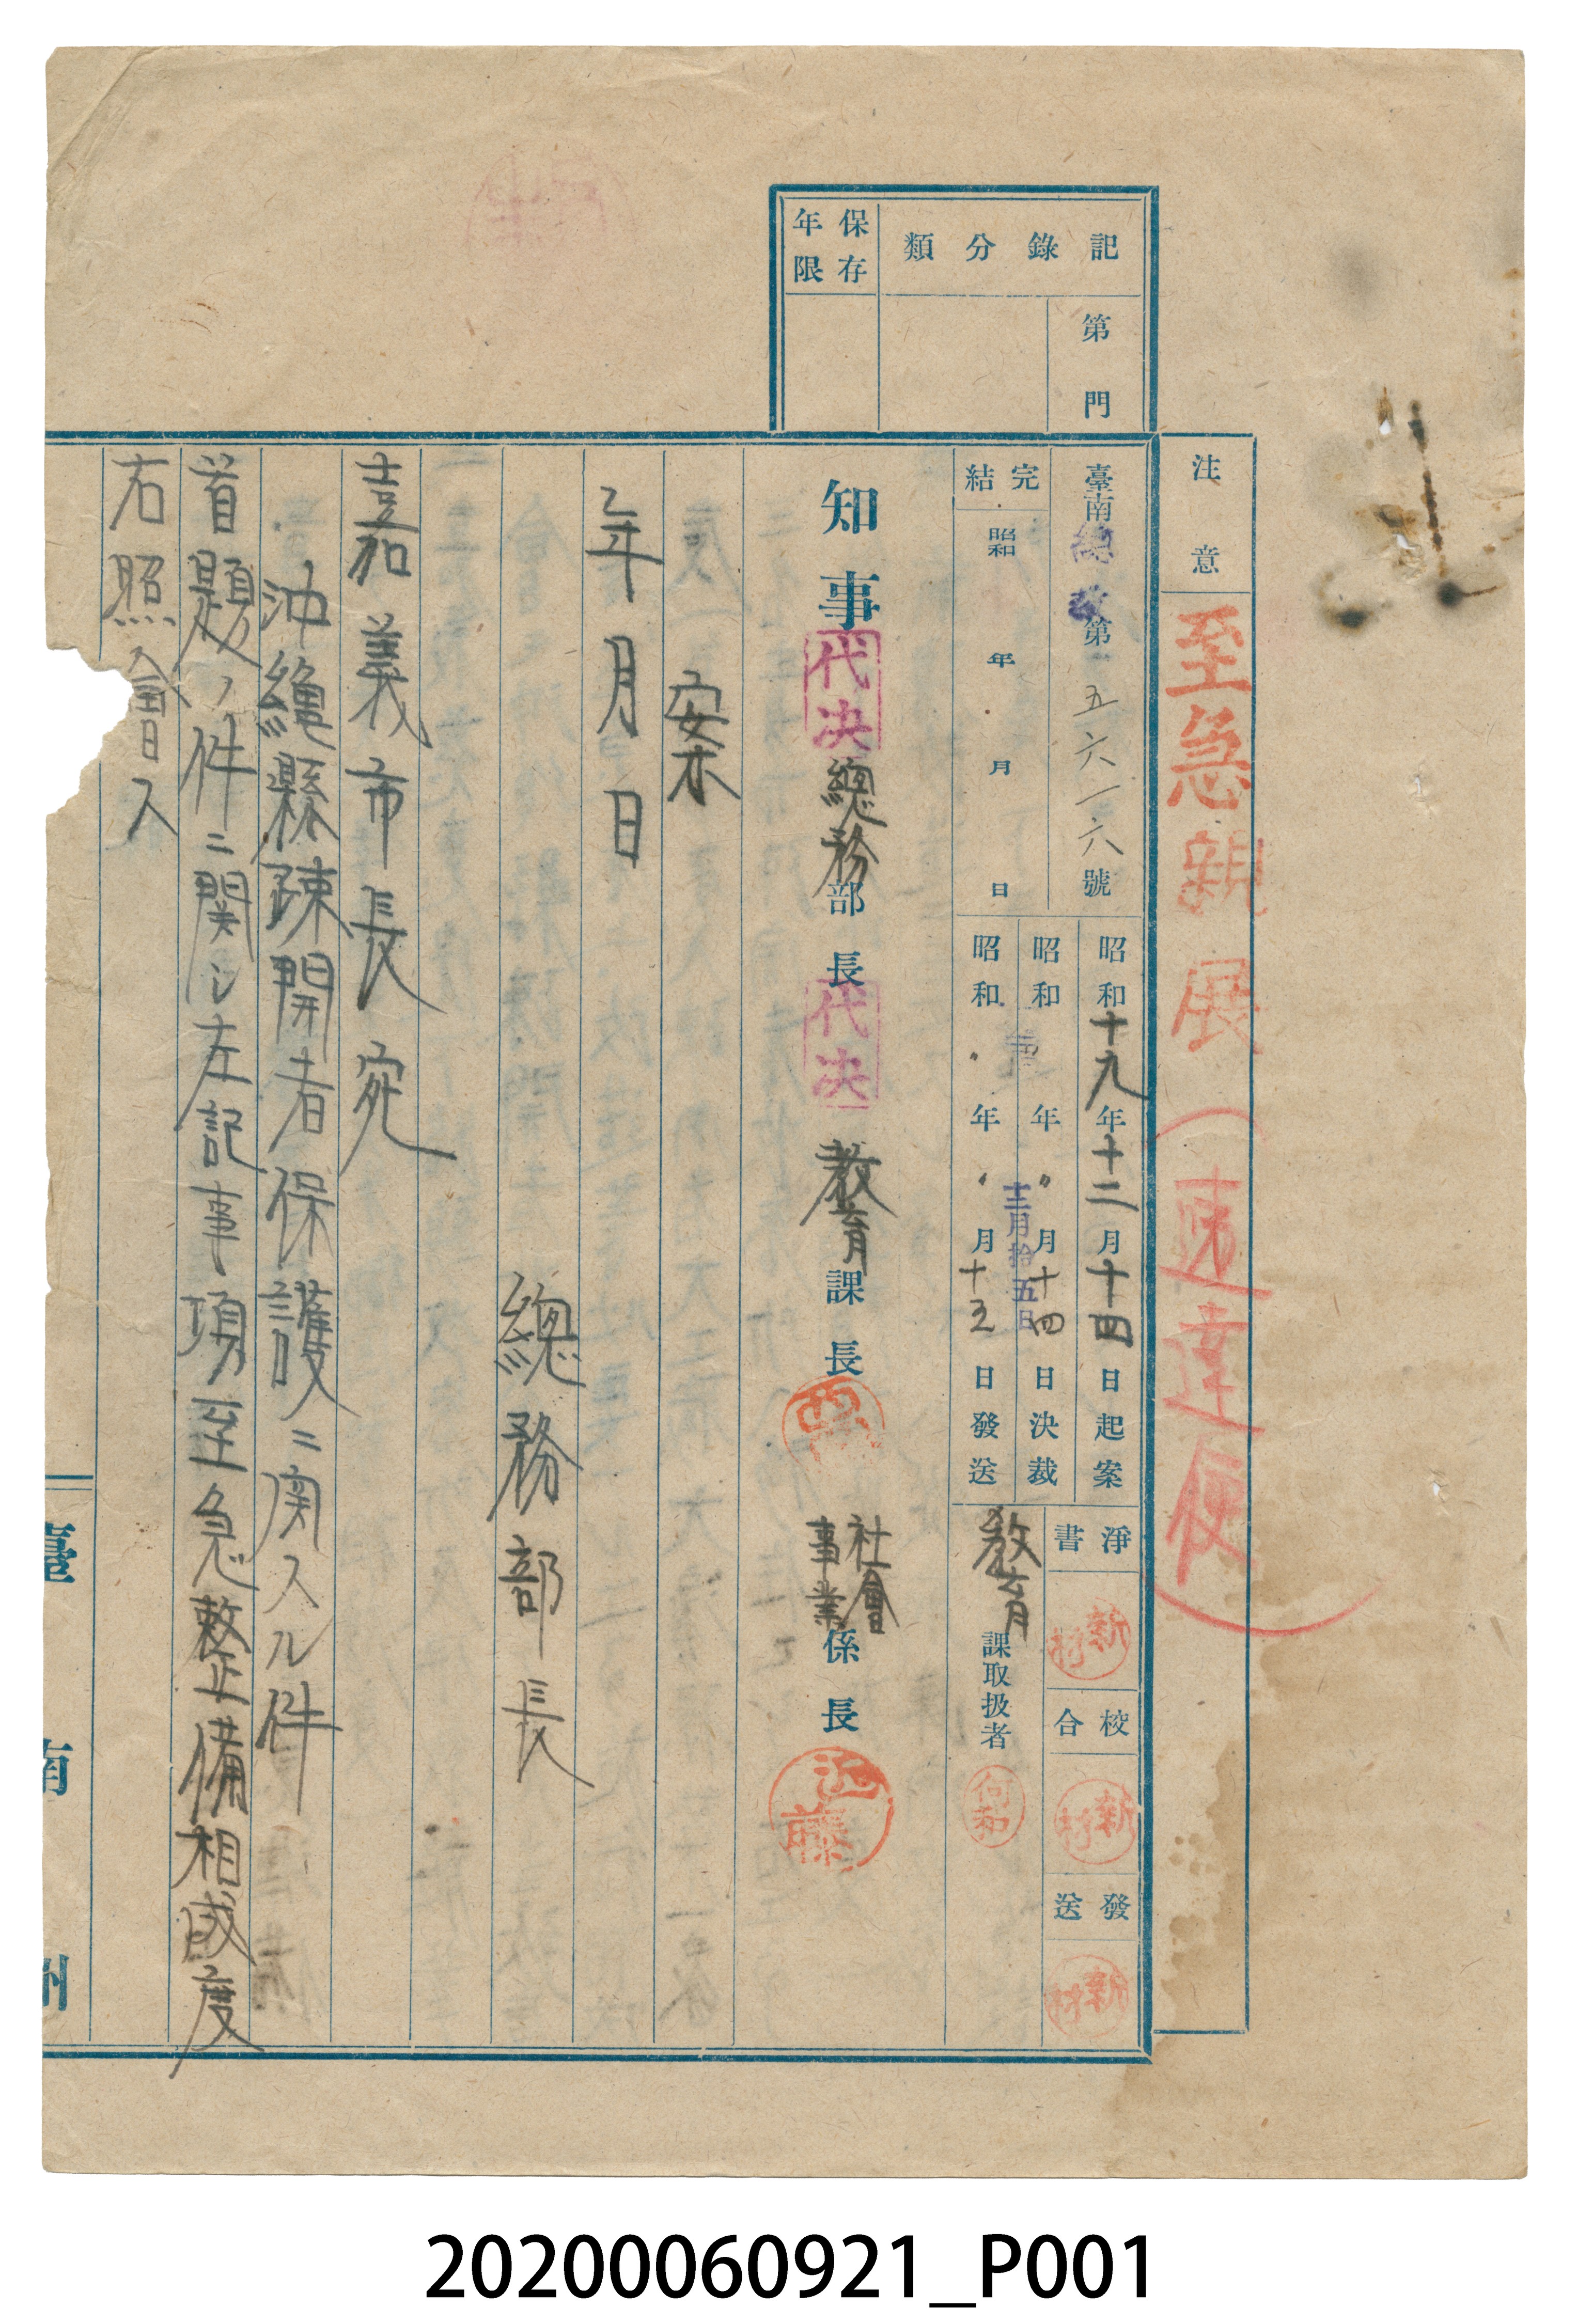 記錄分類
保存年限
第 門
注意 至急親展(速達便)
臺南總教第五六一六號
完結 昭和 年 月 日
昭和十九年十二月十四日起案
昭和 年〃月十四日決裁
十二月拾五日
昭和〃年〃月十五日發送
淨書 新村
校合 新村
發送 新村
教育課取扱者
知事 代決 總務部長 代決 教育課長 西 社會事業係長 近藤
案
年月日
總務部長
嘉義市長宛
沖繩縣疎開者保護ニ関スル件
首題ノ件ニ関シ左記事項至急整備相成度
右照會ス
臺南州
20200060921_P001